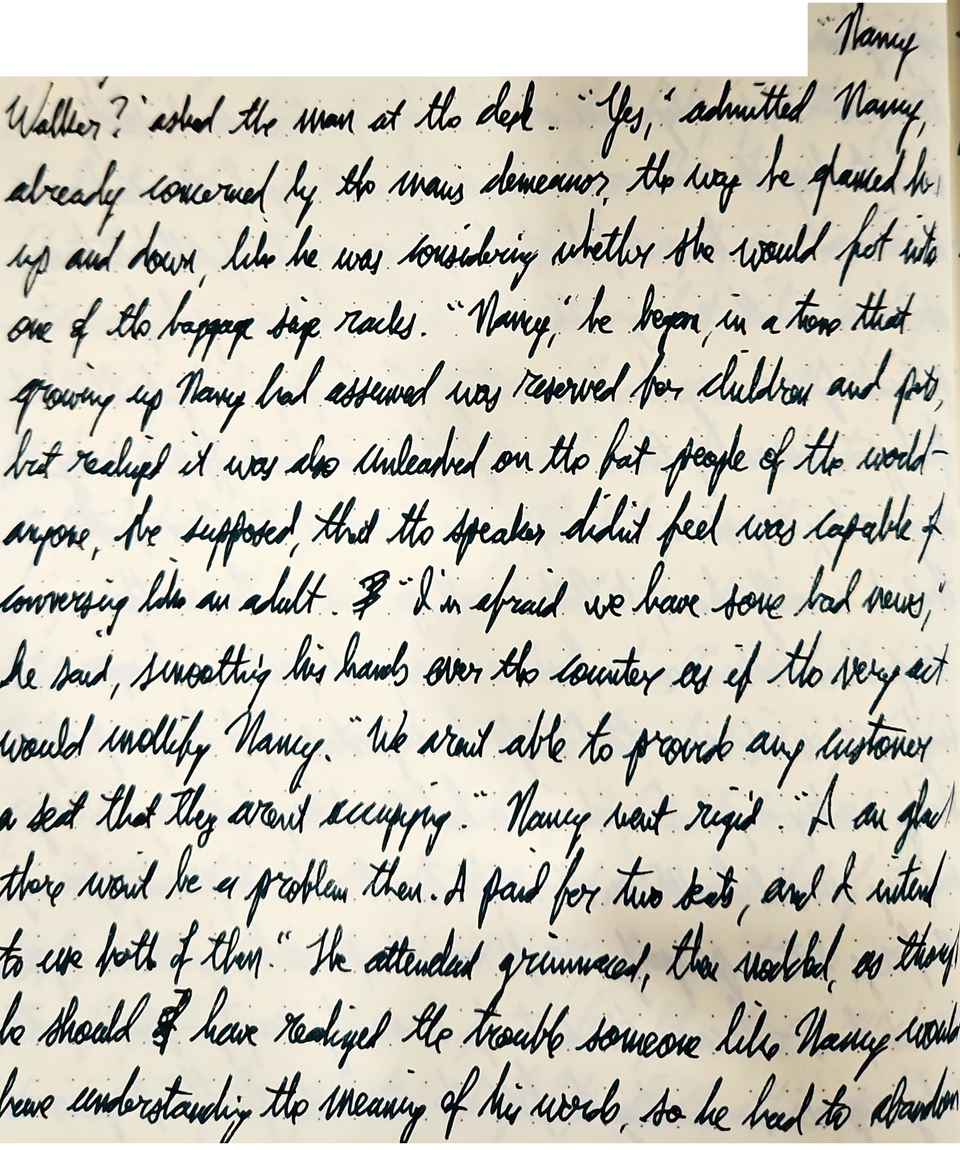 "Nancy
Walker?" asked the man at the desk. "Yes," admitted Nancy,
already concerned by the mans demeanor, the way he glanced her
up and down, like he was considering whether she would fit into
one of the baggage size racks. "Nancy," he began, in a tone that
growing up Nancy had assumed was reserved for children and pets,
but realized it was also unleashed on the fat people of the world-
anyone, she supposed, that the speaker didn't feel was capable of
conversing like an adult. "I'm afraid we have some bad news,"
he said, smoothing his hands over the counter as if the very act
would mollify Nancy. "We aren't able to provide any customer
a seat that they aren't occupying." Nancy went rigid. "I am glad
there won't be a problem then. I paid for two seats, and I intend
to use both of them." The attendant grimmaced, then nodded, as though
he should have realized the trouble someone like Nancy would
have understanding the meaning of his words, so he had to abandon